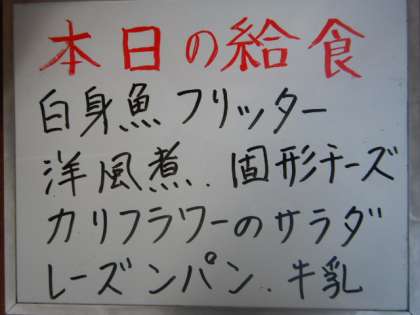 本日の給食
白身魚フリッター
洋風煮.固形チーズ
カリフラワーのサラダ
レーズンパン.牛乳